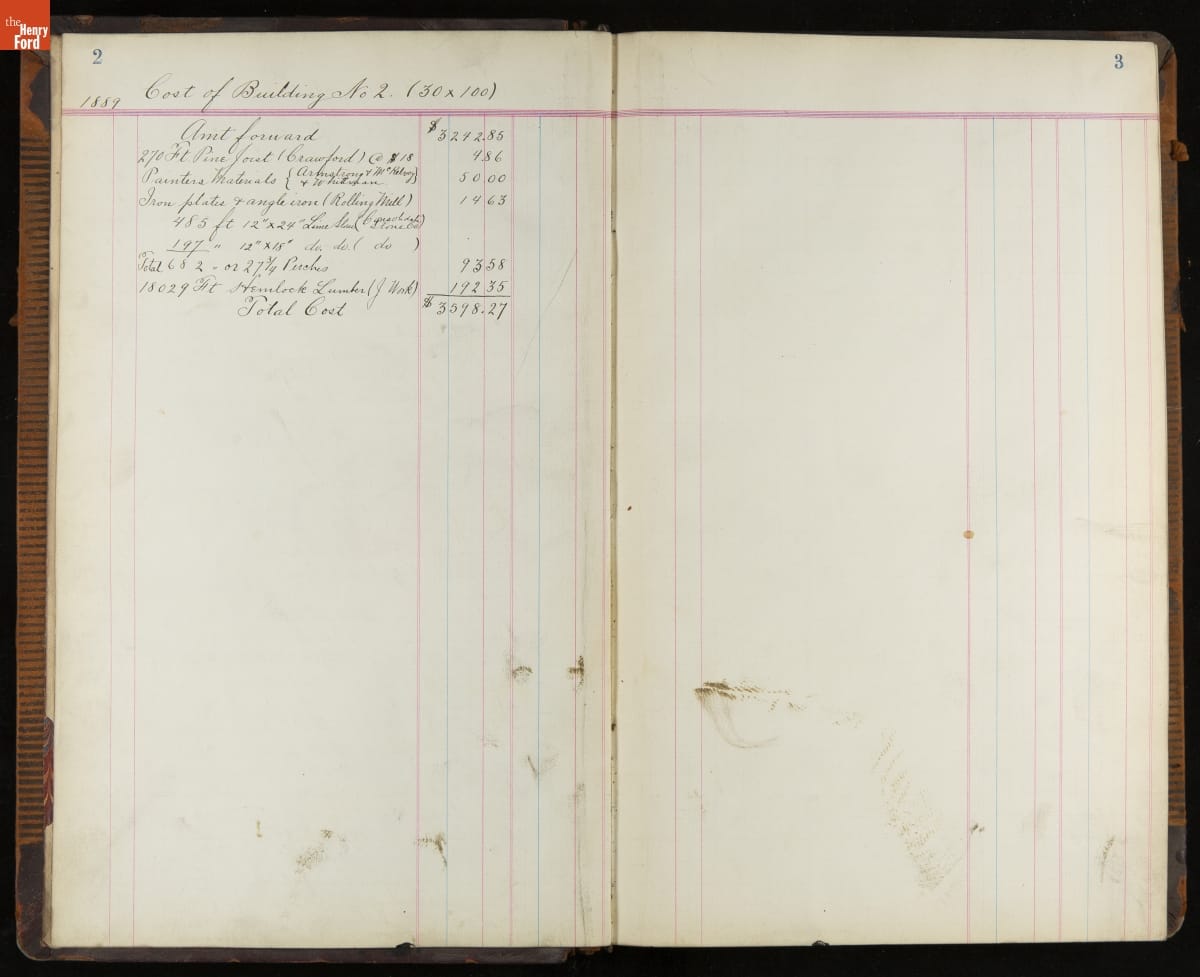 the Henry Ford
2
3
1889 Cost of Building No 2. (30 x 100)
Amt forward $3242.85
270 Ft Pine Joist (Crawford) @ $18 4 86
Painters Materials { Armstrong & McKelvy & Whitman } 50 00
Iron plates & angle iron (Rolling Mill) 14 63
485 ft 12" x 24" Lime Stone (Consolidated Stone Co)
197 " 12" x 18" do. do. ( do )
Total 682 " or 27 3/4 Perches 93 58
18029 Ft Hemlock Lumber (J Work) 192 35
Total Cost $3598.27